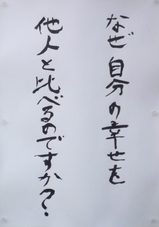 なぜ自分の幸せを
他人と比べるのですか?